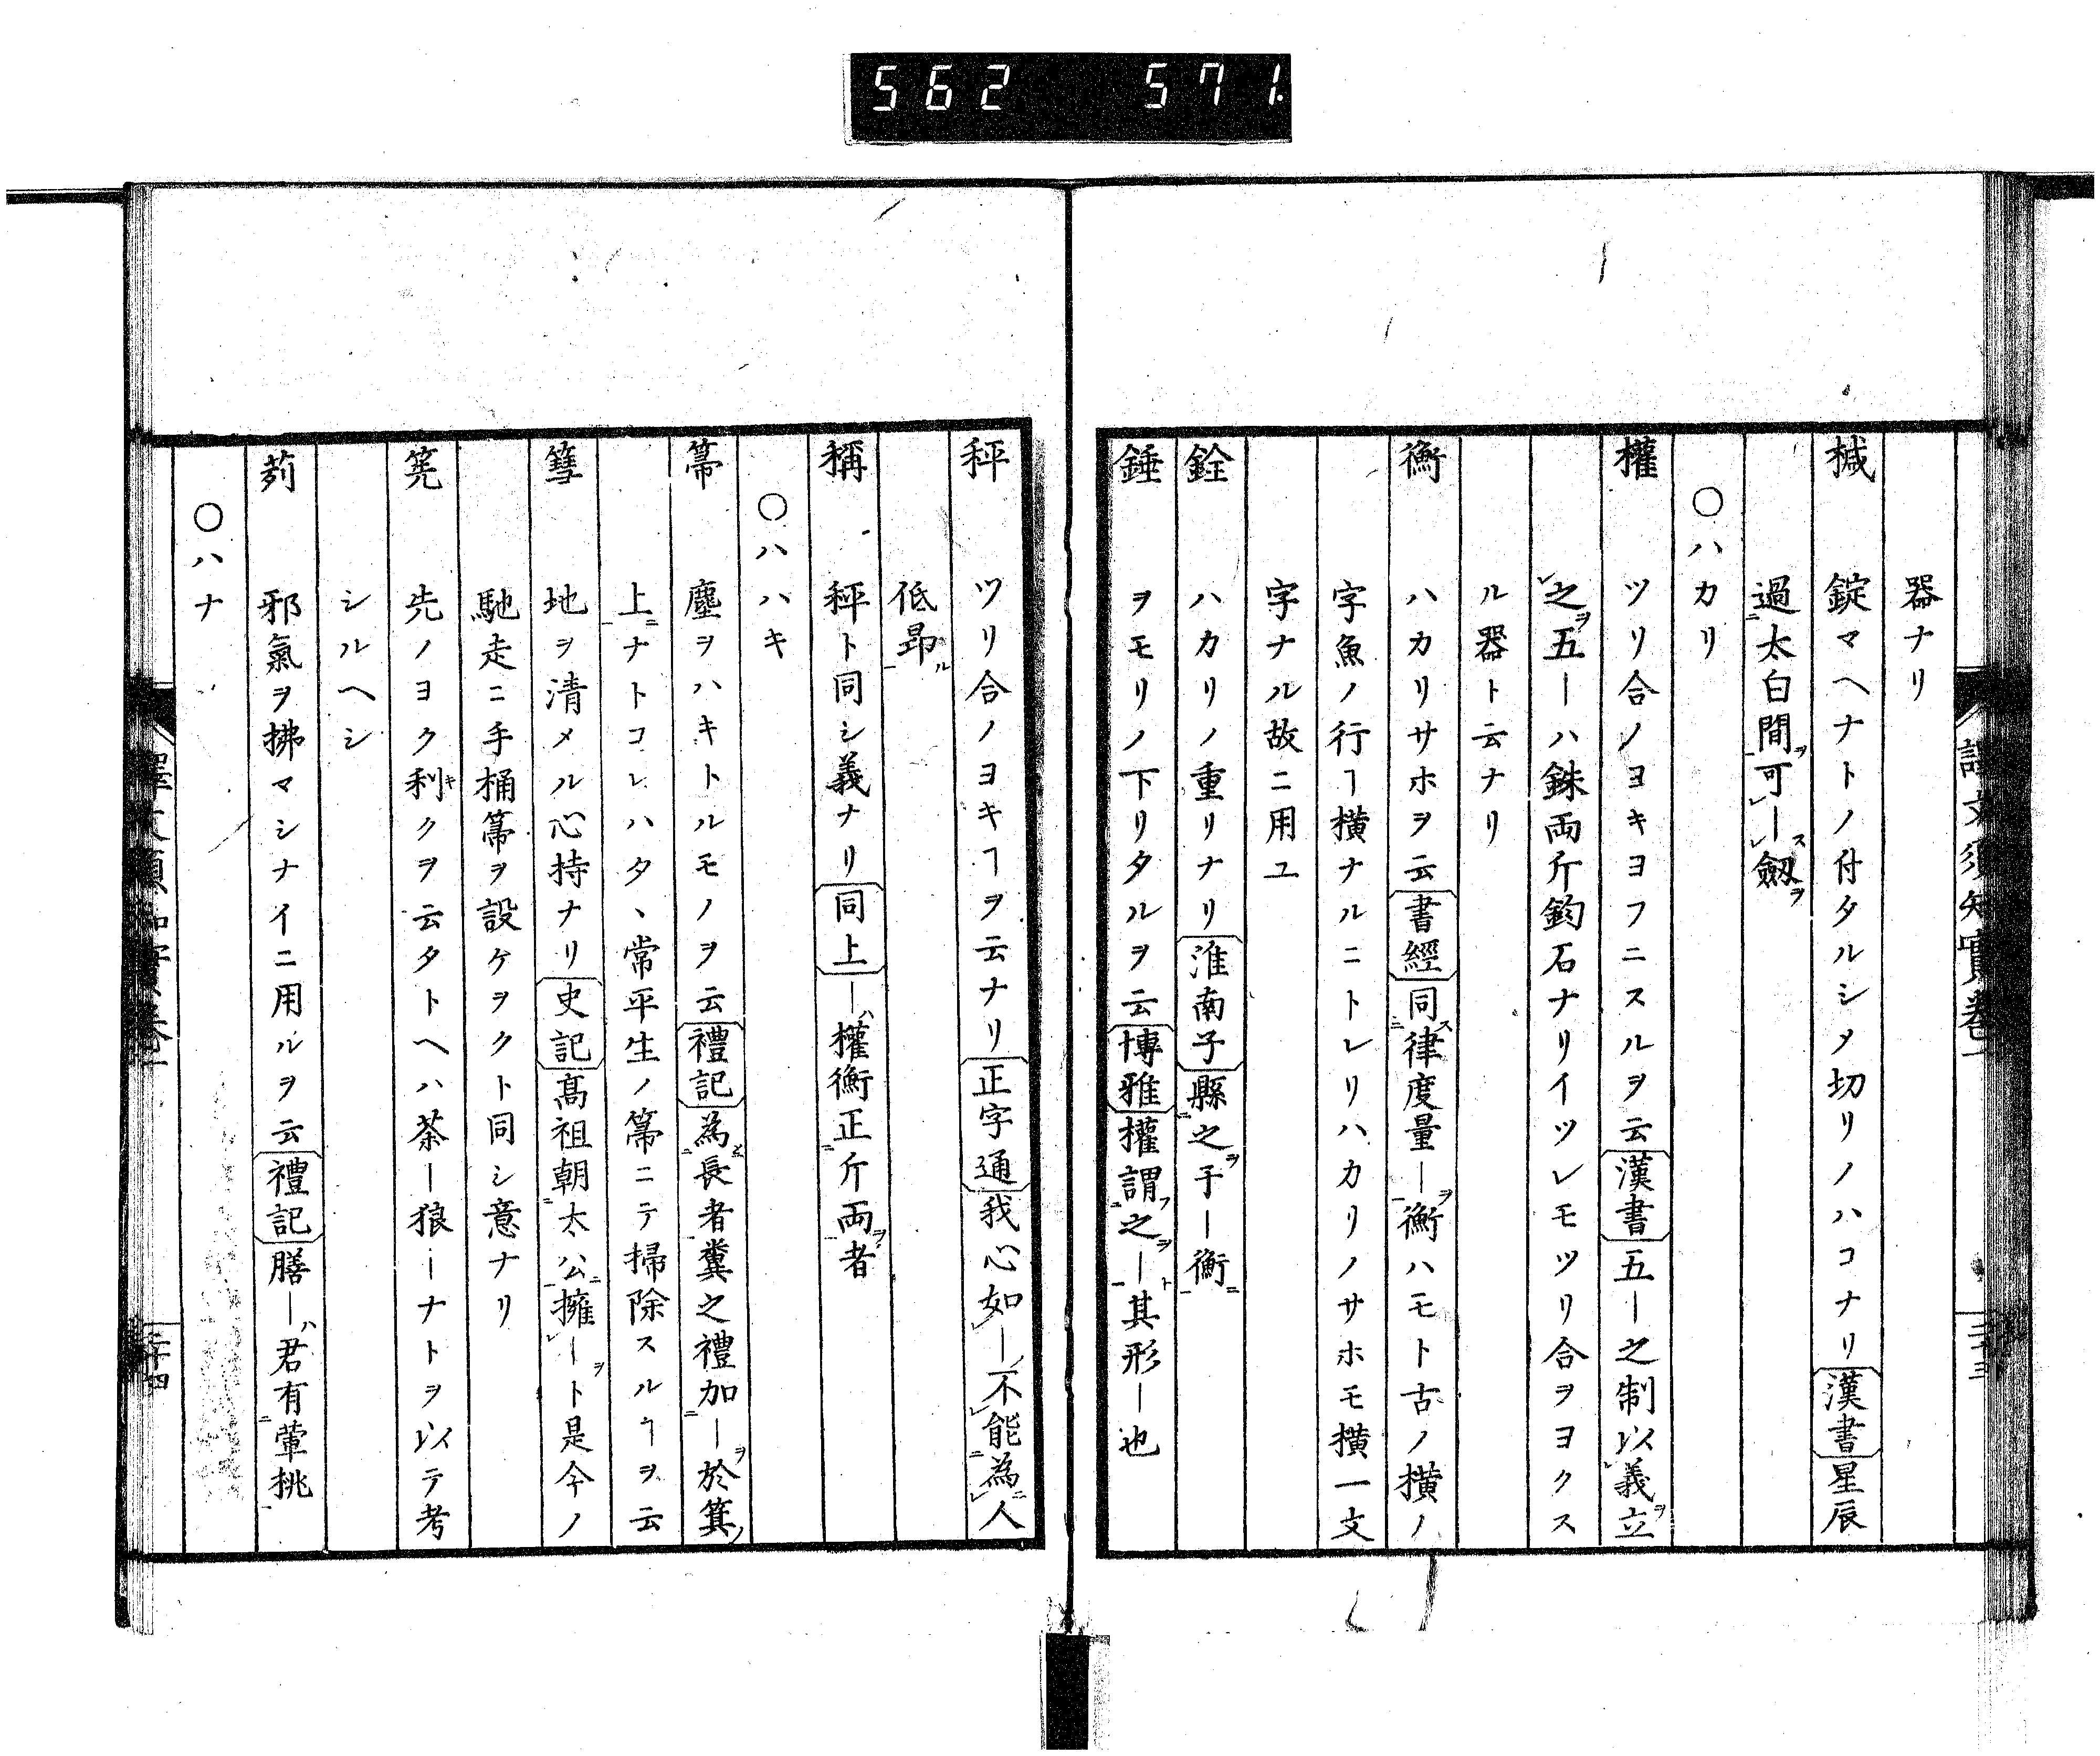 562 571.
器ナリ
椷 錠マヘナトノ付タルシメ切リノハコナリ漢書星辰
過太白間可ー劔
○ハカリ
權 ツリ合ノヨキヨフニスルヲ云漢書五ー之制以義立
之五ーハ銖両斤鈞石ナリイツレモツリ合ヲヨクス
ル器ト云ナリ
衡 ハカリサホヲ云書經同律度量ー衡ハモト古ノ横ノ
字魚ノ行ヿ横ナルニトレリハカリノサホモ横一文
字ナル故ニ用ユ
銓 ハカリノ重リナリ淮南子縣之于ー衡
錘 ヲモリノ下リタルヲ云博雅權謂之ー其形ー也
秤 ツリ合ノヨキヿヲ云ナリ正字通我心如ー不能為人
低昂
稱 秤ト同シ義ナリ同上ー權衡正斤両者
○ハハキ
箒 塵ヲハキトルモノヲ云禮記為長者糞之禮加ー於箕
上ナトコレハタヽ常平生ノ箒ニテ掃除スルヿヲ云
篲 地ヲ清メル心持ナリ史記髙祖朝太公擁ート是今ノ
馳走ニ手桶箒ヲ設ケヲクト同シ意ナリ
筅 先ノヨク利クヲ云タトヘハ茶ー狼ーナトヲ以テ考
シルヘシ
茢 邪氣ヲ拂マシナイニ用ルヲ云禮記膳ー君有葷桃
○ハナ